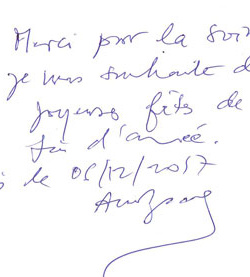 Merci pour la soi
je vous souhaite d
joyeuses fêtes de
fin d'année.
le 06/12/2017